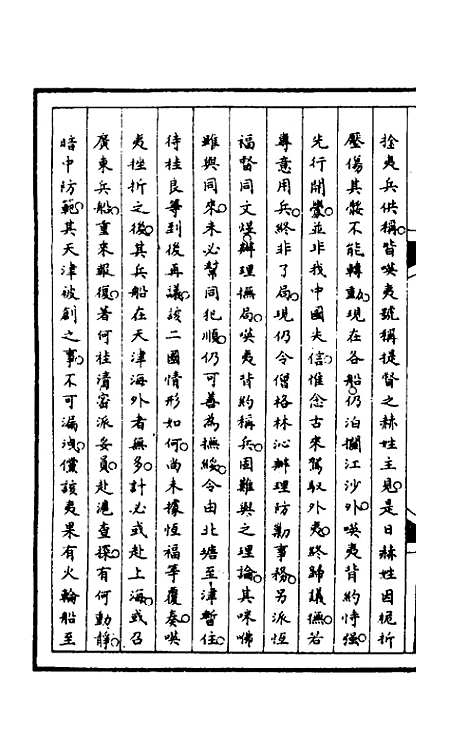 捡夷兵供稱皆暎夷號稱提督之赫姓主見是日赫姓因桅折
壓傷其骽不能轉動現在各船仍泊攔江沙外暎夷背約恃強
先行開釁並非我中國失信惟念古來駕馭外夷終歸議撫若
專意用兵終非了局現仍令僧格林沁辦理防勦事務另派恆
福督同文煜辦理撫局暎夷背約稱兵固難與之理論其咪咈
雖與同來未必幫同犯順仍可善為撫綏令由北塘至津暫住
待桂良等到後再議該二國情形如何尚未據恆福等覆奏暎
夷挫折之後其兵船在天津海外者無多計必或赴上海或召
廣東兵船重來報復著何桂清密派妥員赴滬查探有何動靜
暗中防範其天津被創之事不可漏洩儻該夷果有火輪船至